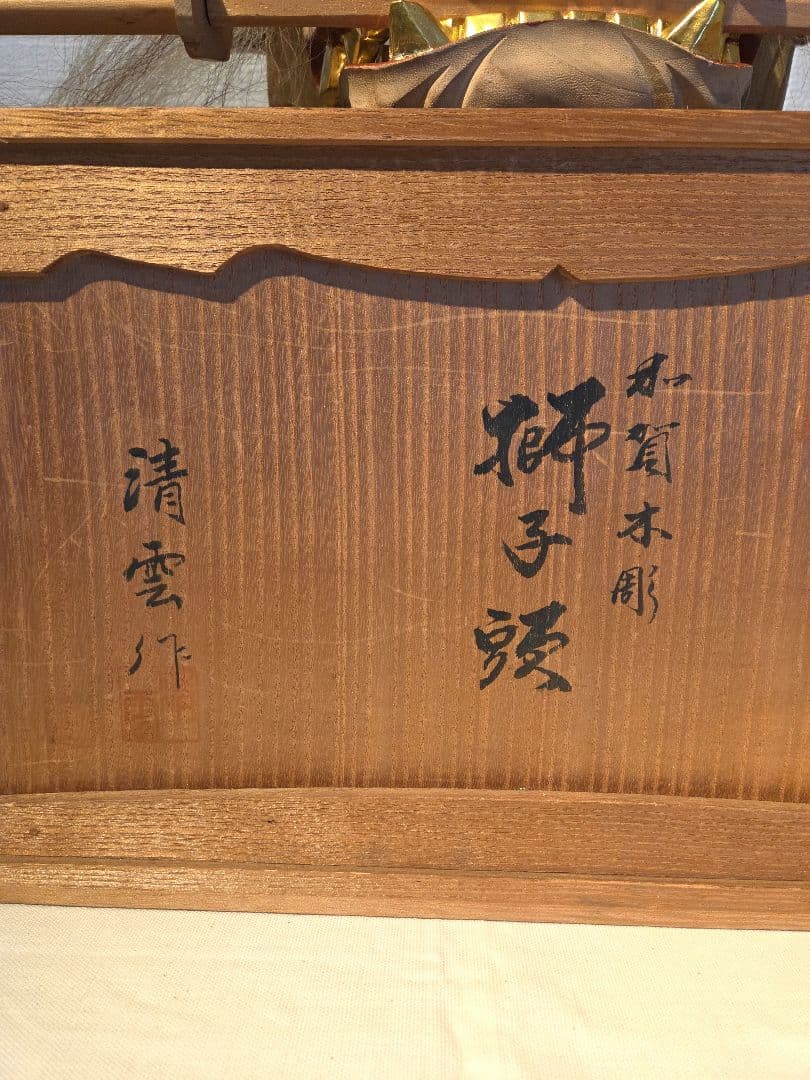 加賀木彫
獅子頭
清雲作